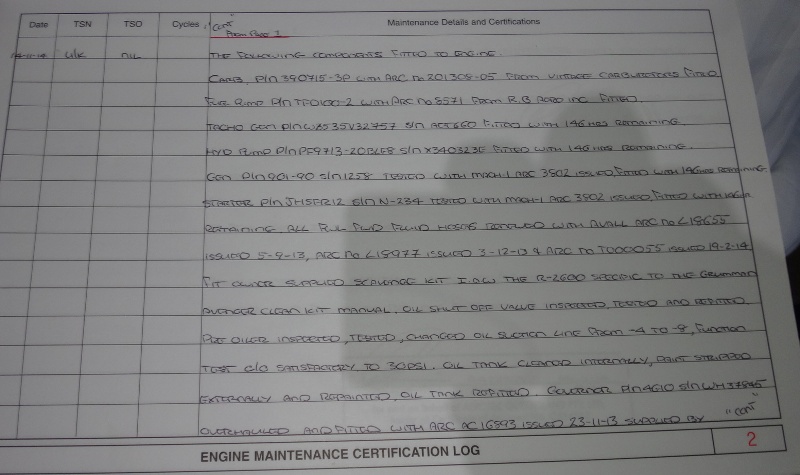 Date TSN TSO Cycles "CONT" Maintenance Details and Certifications
FROM PAGE 1
U/K NIL THE FOLLOWING COMPONENTS FITTED TO ENGINE.
CARB. P/N 390715-3P WITH ARC NO 201309-05 FROM VINTAGE CARBURETORS FITTED
FUEL PUMP P/N TF0100-2 WITH ARC NO 8571 FROM R.B AERO INC FITTED.
TACHO GEN P/N FITTED WITH 146 HRS REMAINING.
HYD PUMP P/N PF9713-20BCE8 S/N X340323E FITTED WITH 146 HRS REMAINING.
GEN P/N 901-90 S/N 1258 TESTED WITH ARC 3802 ISSUED, FITTED WITH 146 HRS REMAINING.
STARTER P/N JH5FR12 S/N N-234 TESTED WITH ARC 3802 ISSUED, FITTED WITH
REMAINING. ALL FWD FLUID HOSES RENEWED WITH AVIALL ARC NO L18655
ISSUED 5-9-13, ARC NO L18977 ISSUED 3-12-13 & ARC NO T000055 ISSUED 19-2-14
FIT OWNER SUPPLIED SCAVENGE KIT I.A.W THE R-2600 SPECIFIC TO THE GRUMMAN
AVENGER CLEAN KIT MANUAL. OIL SHUT OFF VALVE INSPECTED, TESTED AND REFITTED.
PRE OILER INSPECTED, TESTED, CHANGED OIL SUCTION LINE FROM -4 TO -8, FUNCTION
TEST C/O SATISFACTORY TO 30PSI. OIL TANK CLEANED INTERNALLY, PAINT STRIPPED
EXTERNALLY AND REPAINTED, OIL TANK REFITTED. GOVERNOR P/N 4G10 S/N WH37845
OVERHAULED AND FITTED WITH ARC AC16393 ISSUED 23-11-13 SUPPLIED BY "CONT"
ENGINE MAINTENANCE CERTIFICATION LOG 2